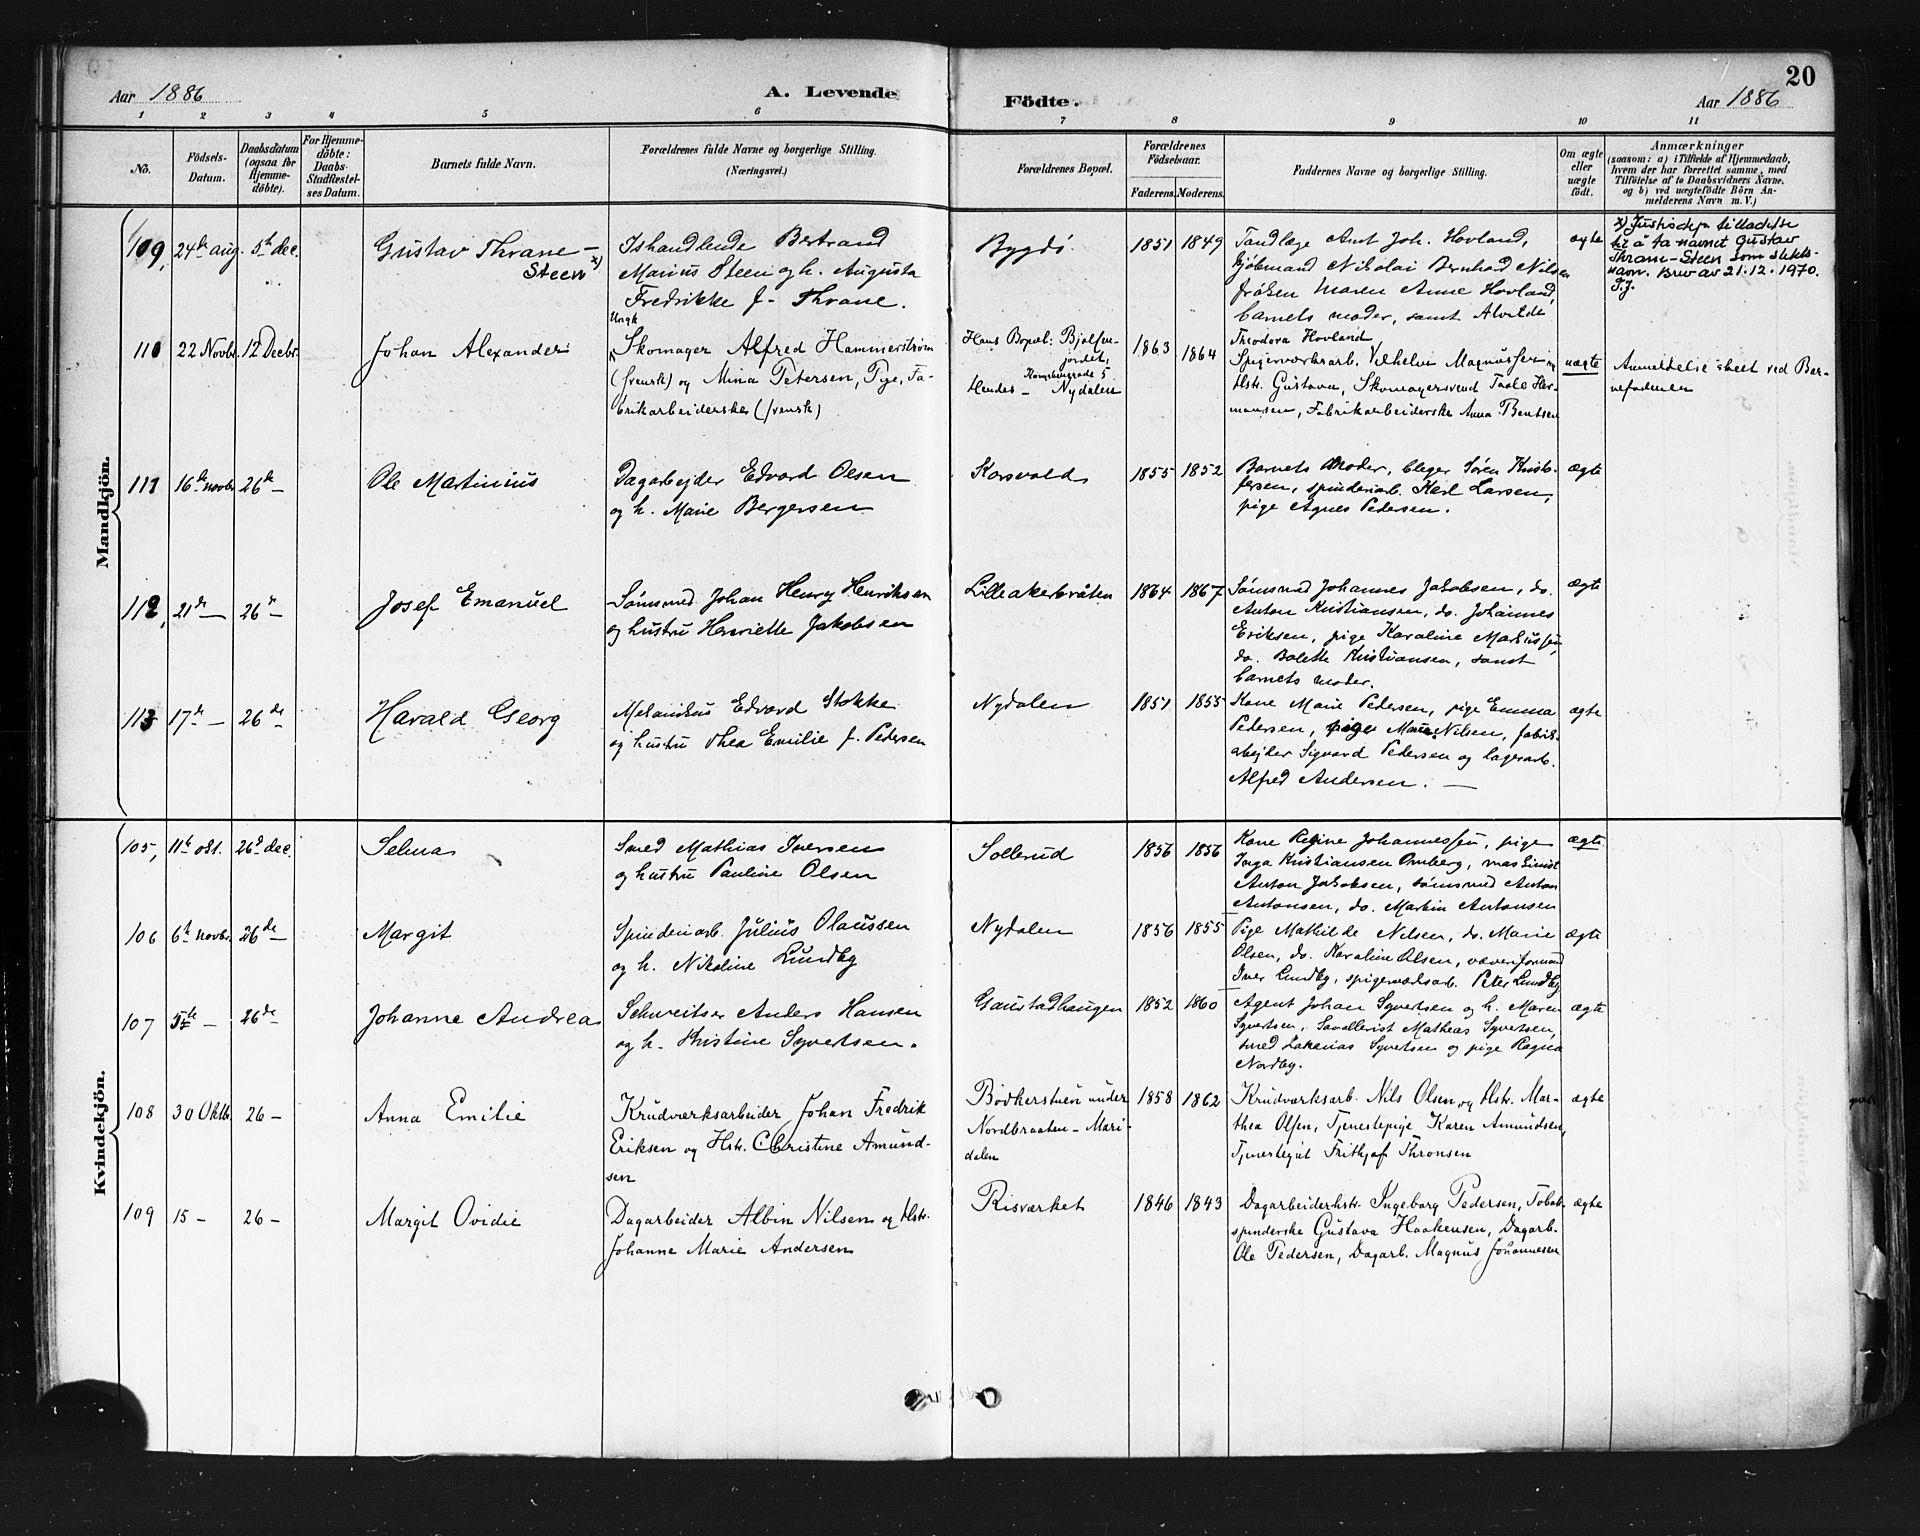 20
Aar 1886
A. Levende
Födte.
Aar 1886
1 2 3 4 5 6 7 8 9 10 11
No.
Födsels-
Datum.
Daabsdatum
(ogsaa for
Hjemme-
döbte).
For Hjemme-
döbte:
Daabs-
Stadfæstel-
ses Datum.
Barnets fulde Navn.
Forældrenes fulde Navne og borgerlige Stilling.
(Næringsvei.)
Forældrenes Bopæl.
Forældrenes
Födselsaar.
Faderens. Moderens.
Faddernes Navne og borgerlige Stilling.
Om ægte
eller
uægte
födt.
Anmærkninger
(saasom: a) i Tilfælde af Hjemmedaab,
hvem der har forrettet samme, med
Tilföielse af to Daabsvidners Navne,
og b) ved uægtefödte Börn An-
melderens Navn m. V.)
Mandkjön.
109, 24de aug. 5te dec.
Gustav Thrane -
Steen x)
Ishandlende Bertrand
Marius Steen og h. Augusta
Fredrikke f. Thrane.
Bygdö.
1851 1849
Tandlæge Amt Joh. Hovland,
kjöbmand Nikolai Bernhard Nilsen
fröken Maren Anne Hovland,
barnets moder, samt Alvilde
Theodora Hovland
ægte
x) Justisdep. tilladelse
til å ta navnet Gustav
Thrane-Steen som slekts-
navn. Brev av 21.12.1970.
110 22 Novbr. 12 Decbr.
Johan Alexander
Ungk
Skomager Alfred Hammerström
(svensk) og Mina Petersen, Pige, Fa-
brikarbeiderske (svensk)
Hans Bopæl: Bjölsen-
jordet,
Hendes - Nydalen
1863 1864
Spigerværksarb. Vilhelm Magnussen og
Hstr. Gustava, Skomagersvend Taale Her-
mansen, Fabrikarbeiderske Anna Bentsen
uægte
Anmeldelse skeet ved Bar-
nefaderen
111 16de novbr. 26de -
Ole Martinius
Dagarbejder Edvard Olsen
og h. Marie Bergersen
Korsvold
1855 1852
Barnets Moder, bleger Sören Krist-
fersen, spinderiarb. Karl Larsen,
pige Agnes Pedersen.
ægte
112, 21de - 26de -
Josef Emanuel
Sömsmed Johan Henry Henriksen
og hustru Henriette Jakobsen
Lilleakerbråten
1864 1867
Sömsmed Johannes Jakobsen, do.
Anton Kristiansen, do. Johannes
Eriksen, pige Karoline Markussen,
do. Bolette Kristiansen, samt
barnets moder.
ægte
113 17de - 26de
Harald Georg
Mekanikus Edvard Stokke
og hustru Thea Emilie f. Pedersen
Nydalen
1851 1855
Kone Marie Pedersen, pige Emma
Pedersen, pige Marie Nilsen, fabrik-
arbejder Sigvard Pedersen og lagerarb.
Alfred Andersen. -
ægte
Kvindekjön.
105, 11te okt. 26de dec.
Selma
Smed Mathias Iversen
og hustru Pauline Olsen
Sollerud
1856 1856
Kone Regine Johannessen, pige
Inga Kristiansen Ornberg, maskinist
Anton Jakobsen, sömsmed Anton
Antonsen, do. Martin Antonsen
ægte
106 6te novbr. 26de -
Margit
Spinderiarb. Julius Olaussen
og h. Nikoline Lundby
Nydalen
1856 1855
Pige Mathilde Nilsen, do. Marie
Olsen, do. Karoline Olsen, væveriformand
Iver Lundby, spigerværksarb. Peter Lundby
ægte
107 5te - 26de
Johanne Andrea
Schweitser Anders Hansen
og h. Kristine Syvertsen.
Gaustadhaugen
1852 1860
Agent Johan Syvertsen og h. Maren
Syvertsen, Mathias Syvertsen,
smed Zakarias Syvertsen og pige Ragna
Nordby.
ægte
108 30 Oktb. 26 -
Anna Emilie
Krudværksarbeider Johan Fredrik
Eriksen og Hstr. Christine Amund-
sen
Bödkerstuen under
Nordbraaten - Mari-
dalen
1858 1862
Krudværksarb. Nils Olsen og Hstr. Mar-
thea Olsen, Tjenestepige Karen Amundsen,
Tjenestegut Frithjof Thronsen
ægte
109 15 - 26 -
Margit Ovidie
Dagarbeider Albin Nilsen og Hstr.
Johanne Marie Andersen
Risværket
1846 1843
Dagarbeiderhstr. Ingeborg Pedersen, Tobak-
spinderske Gustava Haakensen, Dagarb.
Ole Pedersen, Dagarb. Magnus Johannesen
ægte